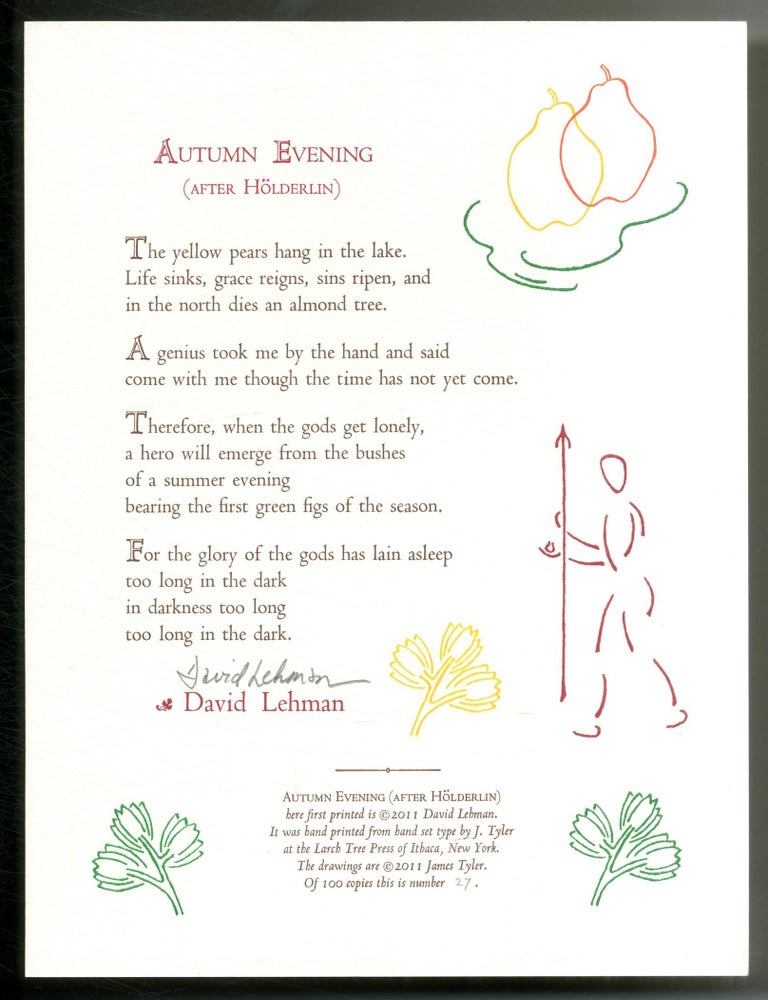 AUTUMN EVENING
(AFTER HÖLDERLIN)
The yellow pears hang in the lake.
Life sinks, grace reigns, sins ripen, and
in the north dies an almond tree.
A genius took me by the hand and said
come with me though the time has not yet come.
Therefore, when the gods get lonely,
a hero will emerge from the bushes
of a summer evening
bearing the first green figs of the season.
For the glory of the gods has lain asleep
too long in the dark
in darkness too long
too long in the dark.
David Lehman
David Lehman
AUTUMN EVENING (AFTER HÖLDERLIN)
here first printed is ©2011 David Lehman.
It was hand printed from hand set type by J. Tyler
at the Larch Tree Press of Ithaca, New York.
The drawings are ©2011 James Tyler.
Of 100 copies this is number 27.